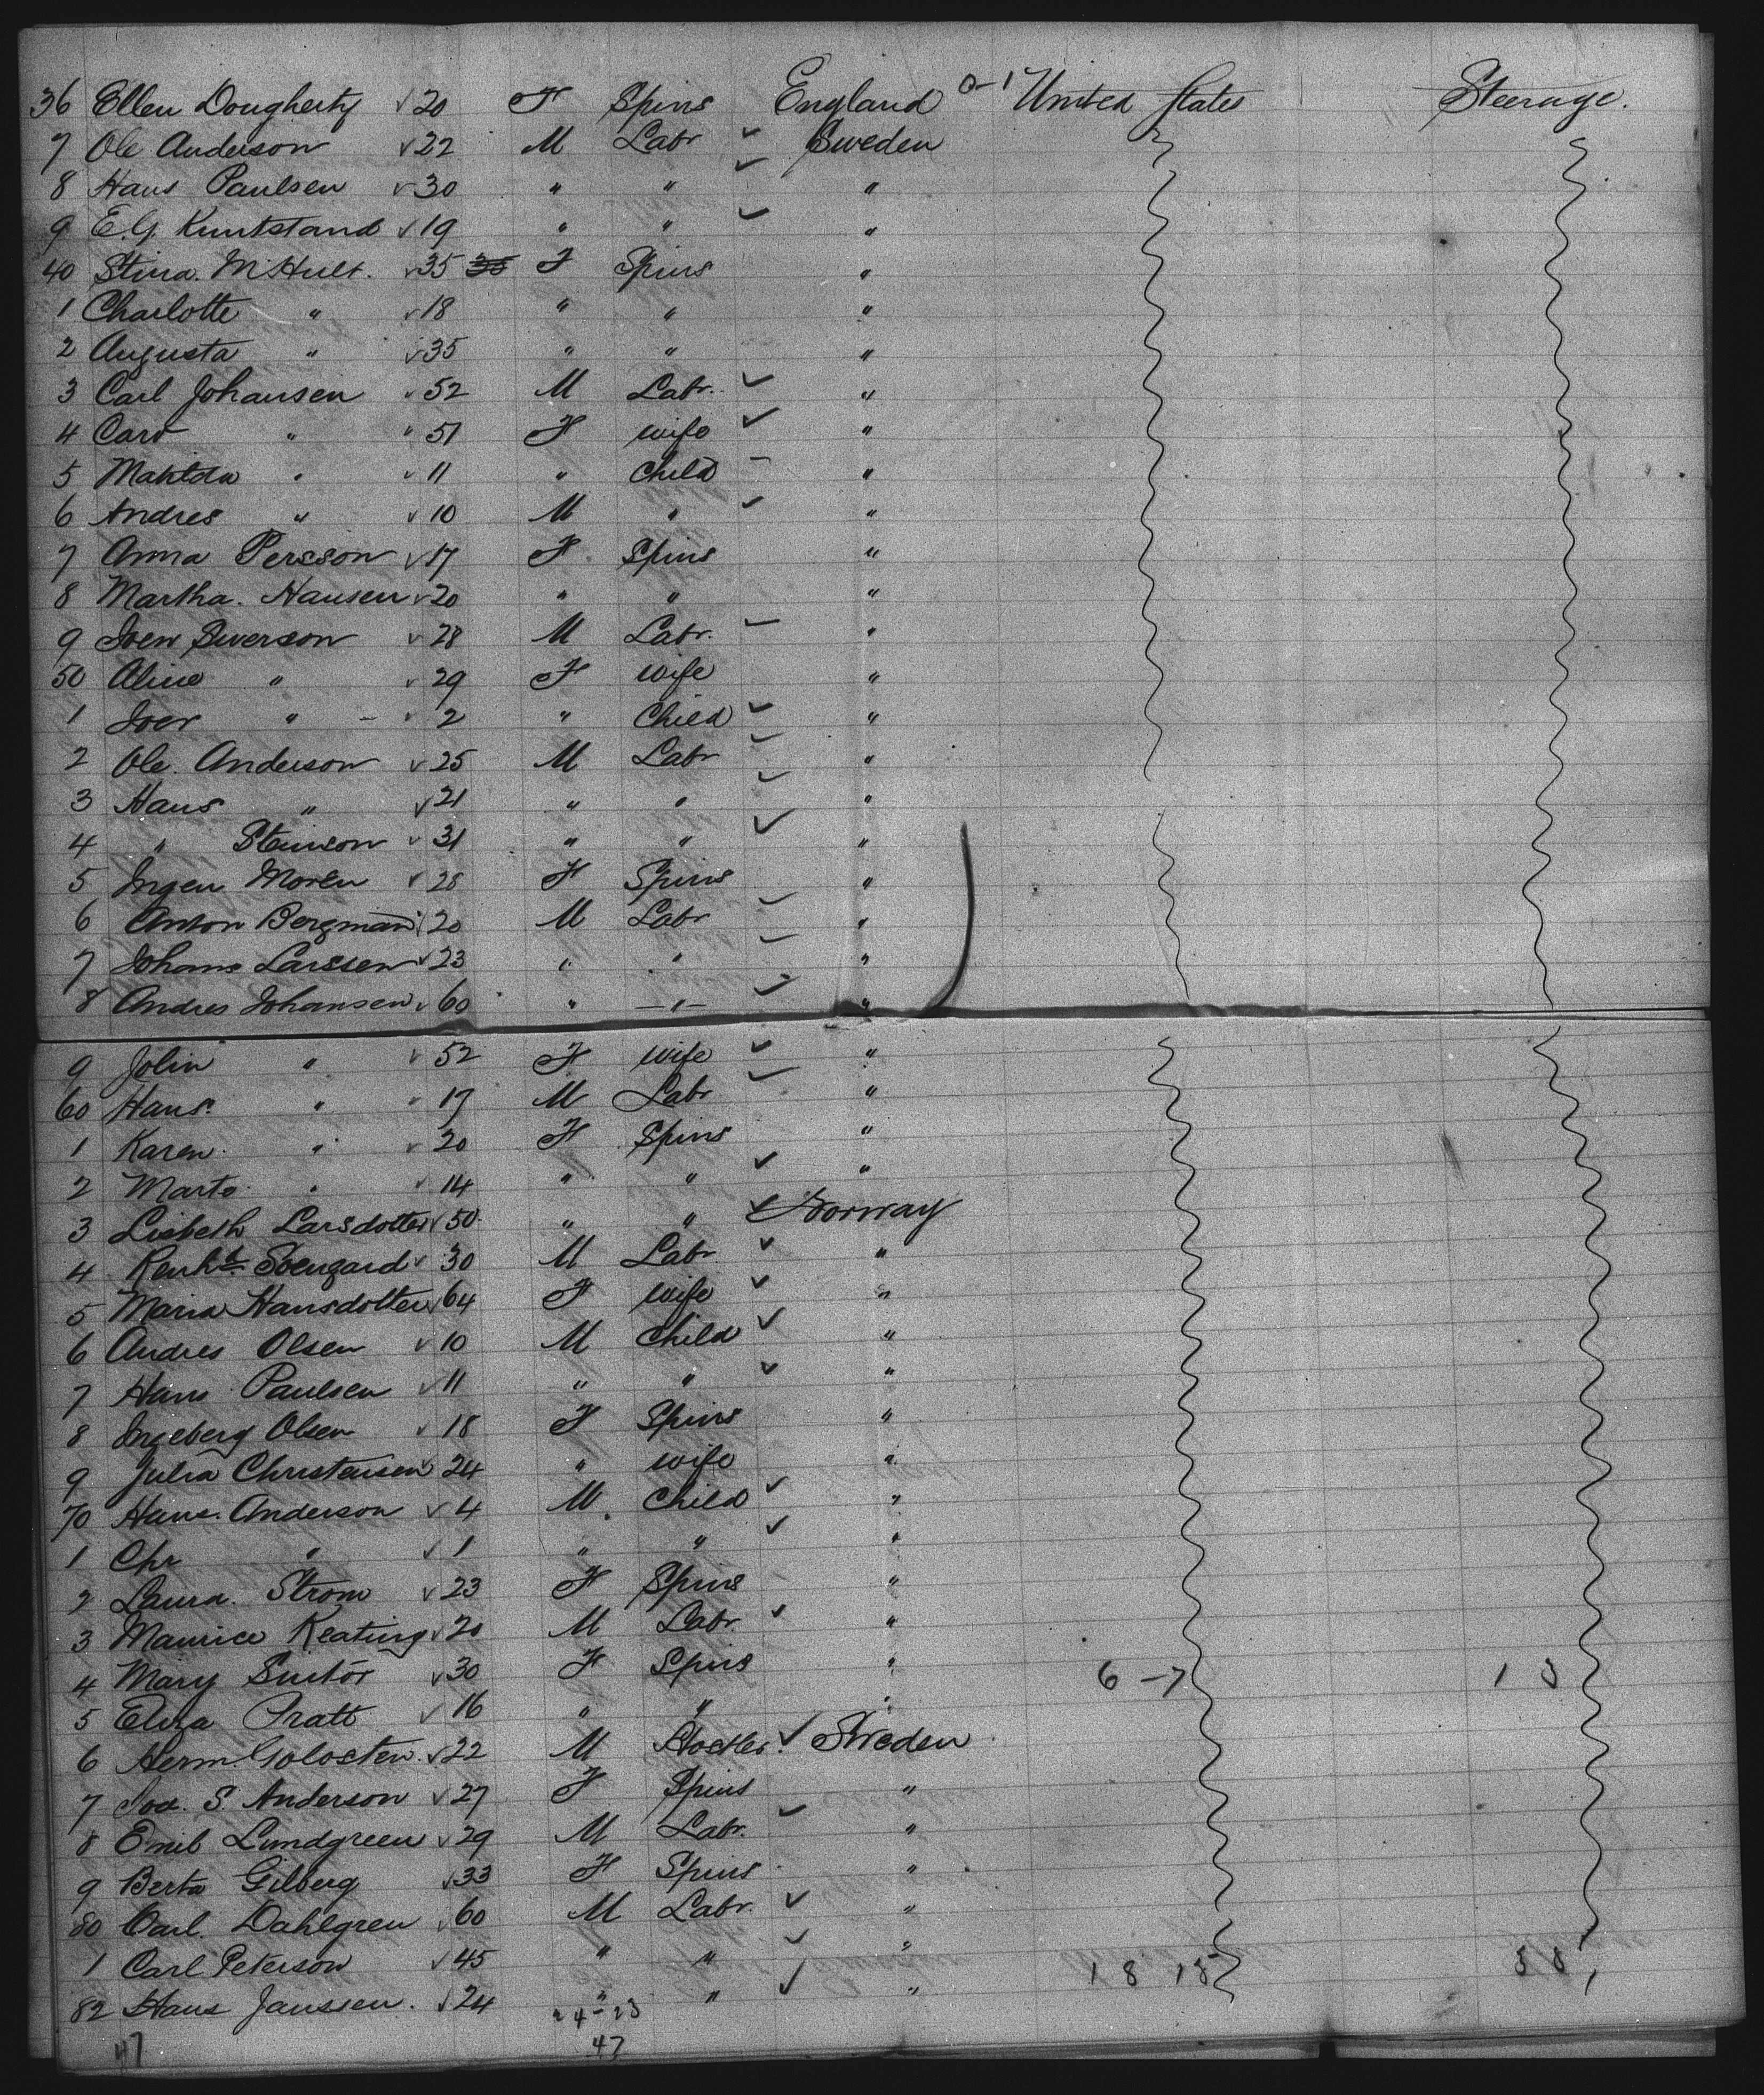 36 Ellen Dougherty √ 20 F Spins England 0-1 United States Steerage.
7 Ole Anderson √ 22 M Labr ✓ Sweden
8 Hans Paulsen √ 30 " " ✓ "
9 E.G. Kuntstand √ 19 " " ✓ "
40 Stina. M Hult. √ 35 F Spins "
1 Charlotte " √ 18 " " "
2 Augusta " √ 35 " " "
3 Carl Johansen √ 52 M Labr. ✓ "
4 Caro " " 51 F wife ✓ "
5 Matilda " √ 11 " Child - "
6 Andres " √ 10 M " ✓ "
7 Anna Persson √ 17 F Spins "
8 Martha. Hansen √ 20 " " "
9 Sven Swerson √ 28 M Labr. - "
50 Aline " √ 29 F wife "
1 Iver " - √ 2 " Child ✓ "
2 Ole. Anderson √ 25 M Labr ✓ "
3 Hans " √ 21 " " ✓ "
4 " Steinson √ 31 " " ✓ "
5 Ingen Moren √ 28 F Spins "
6 Anton Bergman √ 20 M Labr ✓ "
7 Johans Larssen √ 23 " " ✓ "
8 Andres Johansen √ 60 " -"- ✓ "
9 Jolin " √ 52 F wife ✓ "
60 Hans. " " 17 M Labr ✓ "
1 Karen. " √ 20 F Spins "
2 Marto. " √ 14 " " ✓ "
3 Lisbeth Larsdotter √ 50. " " ✓ Norway
4 Svengard √ 30 M Labr ✓ "
5 Maria Hansdotter √ 64 F wife ✓ "
6 Andres Olsen √ 10 M Child ✓ "
7 Hans Paulsen √ 11 " " ✓ "
8 Ingeberg Olsen √ 18 F Spins "
9 Julia Christensen √ 24 " wife "
70 Hans. Anderson √ 4 M. Child ✓ "
1 Chr " √ 1 " " ✓ "
2 Laura. Strom √ 23 F Spins "
3 Maurice Keating √ 20 M Labr. ✓ "
4 Mary Suitor √ 30 F Spins " 6 -7 1 3
5 Eliza Pratt √ 16 " " "
6 Herm. Golosten. √ 22 M ✓ Sweden
7 S. Anderson √ 27 F Spins "
8 Emil Lundgreen √ 29 M Labr. ✓ "
9 Berta Gilberg √ 33 F Spins "
80 Carl. Dahlgren √ 60 M Labr. ✓ "
1 Carl Peterson √ 45 " " ✓ " 18 18
82 Hans Janssen. √ 24 " " ✓ "
24-23
47 47